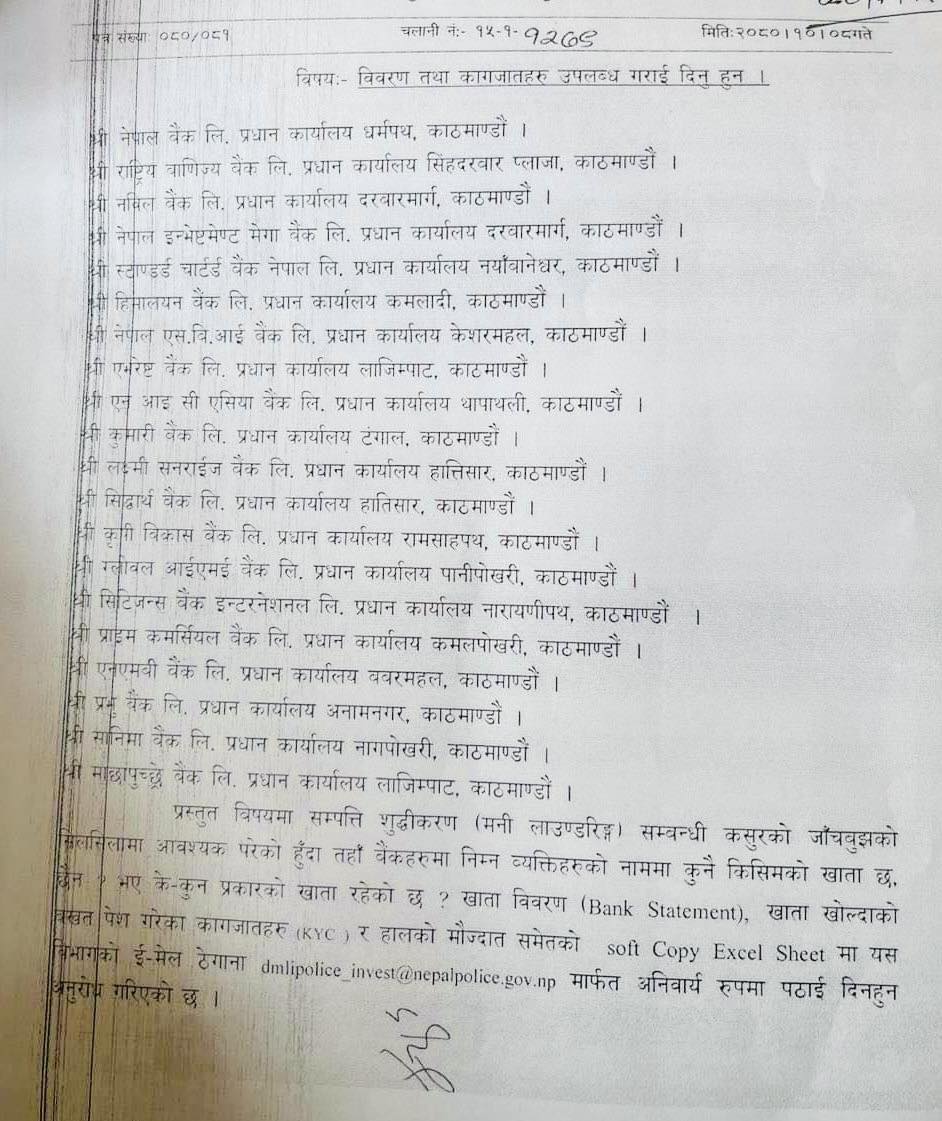 पत्र संख्याः ०८०/०८१ चलानी नं:- १५-१- मितिः२०८०।१०।०८गते
विषयः- विवरण तथा कागजातहरु उपलब्ध गराई दिनु हुन ।
श्री नेपाल बैंक लि. प्रधान कार्यालय धर्मपथ, काठमाण्डौं ।
श्री राष्ट्रिय वाणिज्य बैंक लि. प्रधान कार्यालय सिंहदरवार प्लाजा, काठमाण्डौं ।
श्री नविल बैंक लि. प्रधान कार्यालय दरवारमार्ग, काठमाण्डौं ।
श्री नेपाल इन्भेष्टमेण्ट मेगा बैंक लि. प्रधान कार्यालय दरवारमार्ग, काठमाण्डौं ।
श्री स्टाण्डर्ड चार्टर्ड बैंक नेपाल लि. प्रधान कार्यालय नयाँवानेश्वर, काठमाण्डौं ।
श्री हिमालयन बैंक लि. प्रधान कार्यालय कमलादी, काठमाण्डौं ।
श्री नेपाल एस.वि.आई बैंक लि. प्रधान कार्यालय केशरमहल, काठमाण्डौं ।
श्री एभरेष्ट बैंक लि. प्रधान कार्यालय लाजिम्पाट, काठमाण्डौं ।
श्री एन आइ सी एसिया बैंक लि. प्रधान कार्यालय थापाथली, काठमाण्डौं ।
श्री कुमारी बैंक लि. प्रधान कार्यालय टंगाल, काठमाण्डौं ।
श्री लक्ष्मी सनराईज बैंक लि. प्रधान कार्यालय हात्तिसार, काठमाण्डौं ।
श्री सिद्धार्थ बैंक लि. प्रधान कार्यालय हातिसार, काठमाण्डौं ।
श्री कृषी विकास बैंक लि. प्रधान कार्यालय रामसाहपथ, काठमाण्डौं ।
श्री ग्लोवल आईएमई बैंक लि. प्रधान कार्यालय पानीपोखरी, काठमाण्डौं ।
श्री सिटिजन्स बैंक इन्टरनेशनल लि. प्रधान कार्यालय नारायणीपथ, काठमाण्डौं ।
श्री प्राइम कमर्सियल बैंक लि. प्रधान कार्यालय कमलपोखरी, काठमाण्डौं ।
श्री एनएमवी बैंक लि. प्रधान कार्यालय ववरमहल, काठमाण्डौं ।
श्री प्रभु बैंक लि. प्रधान कार्यालय अनामनगर, काठमाण्डौं ।
श्री सानिमा बैंक लि. प्रधान कार्यालय नागपोखरी, काठमाण्डौं ।
श्री माछापुच्छ्रे बैंक लि. प्रधान कार्यालय लाजिम्पाट, काठमाण्डौं ।
प्रस्तुत विषयमा सम्पत्ति शुद्धीकरण (मनी लाउण्डरिङ्ग) सम्बन्धी कसुरको जाँचबुझको
सिलसिलामा आवश्यक परेको हुँदा तहाँ बैंकहरुमा निम्न व्यक्तिहरुको नाममा कुनै किसिमको खाता छ,
छैन ? भए के-कुन प्रकारको खाता रहेको छ ? खाता विवरण (Bank Statement), खाता खोल्दाको
बखत पेश गरेका कागजातहरु (KYC ) र हालको मौज्दात समेतको soft Copy Excel Sheet मा यस
विभागको ई-मेल ठेगाना dmlipolice_invest@nepalpolice.gov.np मार्फत अनिवार्य रुपमा पठाई दिनहुन
अनुरोध गरिएको छ ।